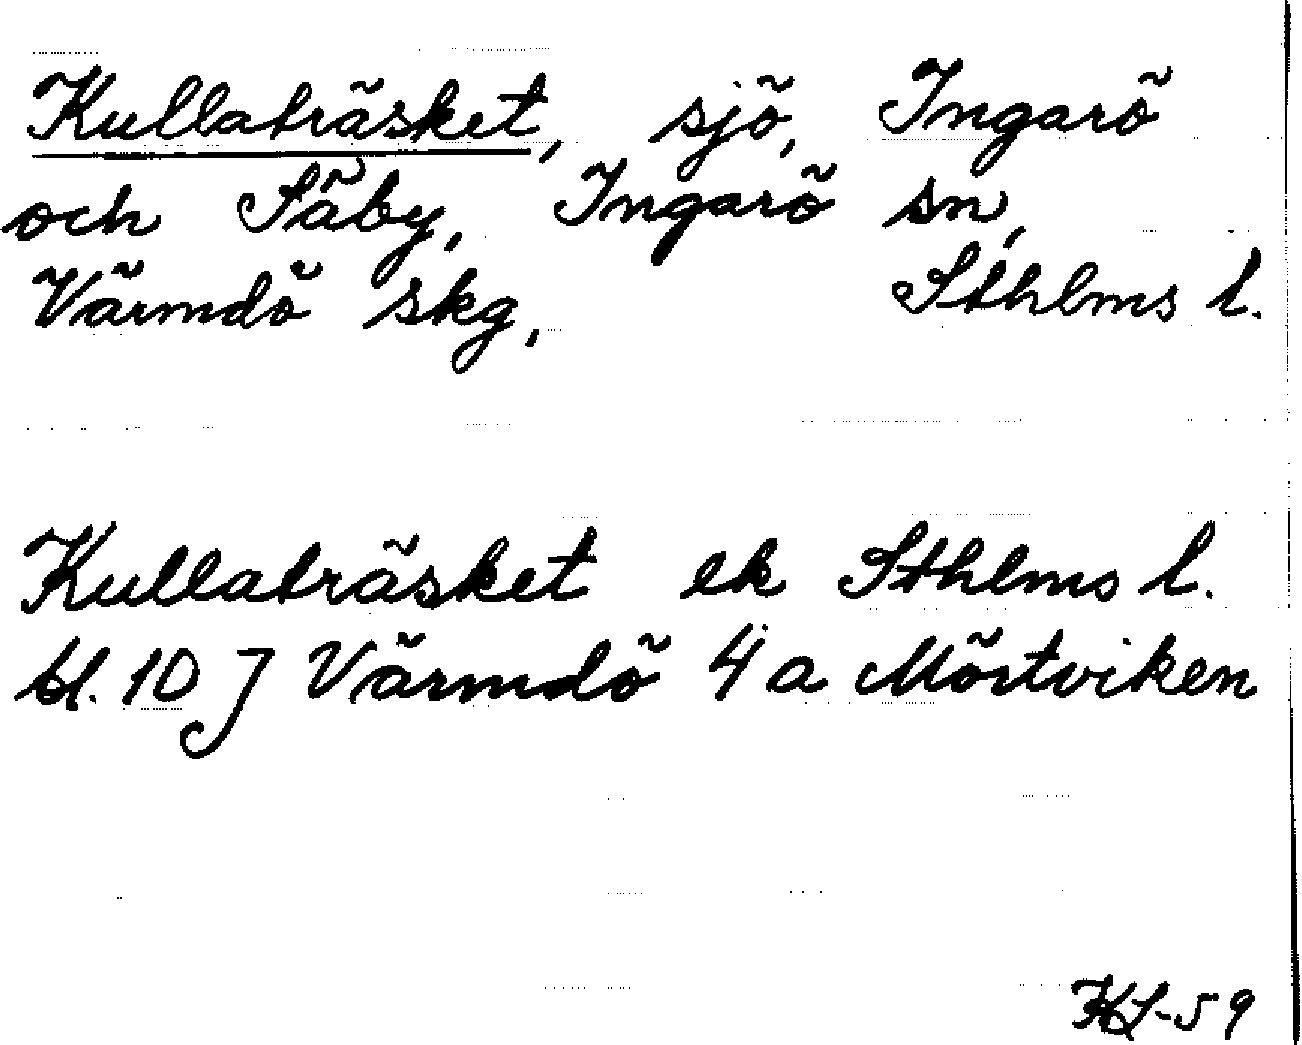 Kullaträsket, sjö, Ingarö
och Säby, Ingarö sn,
Värmdö skg, Sthlms l.
Kullaträsket ek Sthlms l.
bl. 10 J Värmdö 4 a Mörtviken
KL-59